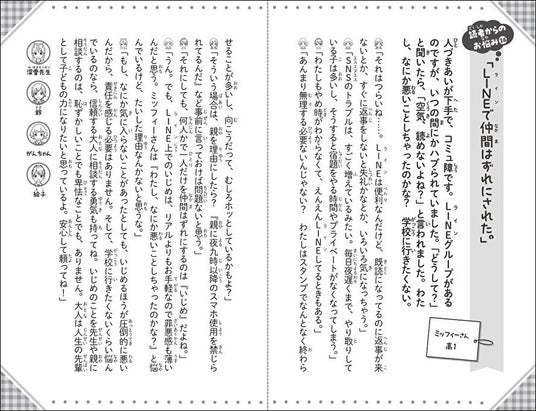 読者からのお悩み⑫
「LINEで仲間はずれにされた。」
人づきあいが下手で、コミュ障です。LINEグループがある
のですが、いつの間にかハブられていました。「どうして?」
と聞いたら、「空気、読めないよね?」と言われました。わた
し、なにか悪いことしちゃったのかな? 学校に行きたくない。
ミッフィーさん
高1
「それはつらいね……。LINEは便利なんだけど、既読になってるのに返事が来
ないとか、すぐに返事をしないと失礼かなとか、いろいろ気になっちゃう。」
「SNSのトラブルは、すごく増えているみたい。毎日夜遅くまで、やり取りして
いる子は多いし、そうすると宿題をやる時間やプライベートがなくなってしまう。」
「わたしもやめ時がわからなくて、えんえんLINEしてるときもある。」
「あんまり無理する必要ないんじゃない? わたしはスタンプでなんとなく終わら
せることが多いし、向こうだって、むしろホッとしているかもよ?」
「そういう場合は、親を理由にしたら? 『親に夜九時以降のスマホ使用を禁じら
れてるんだ』など事前に言っておけば問題ないと思う。」
「それにしても、何人かでひとりだけを仲間はずれにするのは『いじめ』だよね。」
「うん。でも、LINEでのいじめは、リアルよりもお手軽なので罪悪感も薄い
んだと思う。ミッフィーさんは『わたし、なにか悪いことしちゃったのかな?』と悩
んでいるけど、たいした理由なんかないと思うな。」
「もし、なにか気に入らないことがあったとしても、いじめるほうが圧倒的に悪い
んだから、責任を感じる必要はありません。そして、学校に行きたくないくらい悩ん
でいるのなら、信頼する大人に相談する勇気も持ってね。いじめのことを先生や親に
相談するのは、恥ずかしいことでも卑怯なことでも、ありません。大人は人生の先輩
として子どもの力になりたいと思っているよ。安心して頼ってね!」
深愛先生
鈴
がんちゃん
絵子